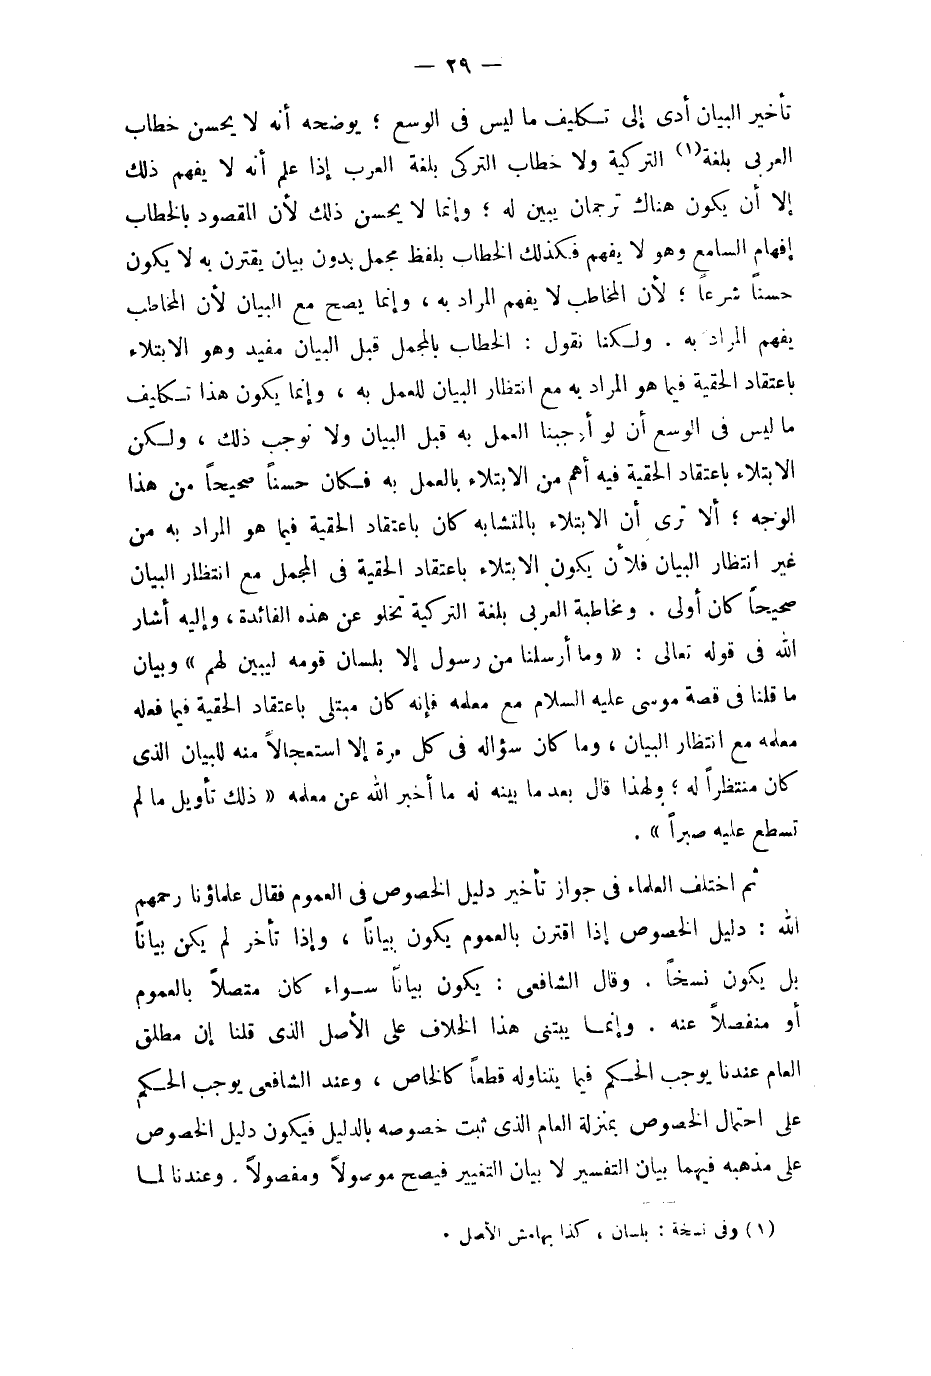 — ٢٩ —
تأخير البيان أدى إلى تكليف ما ليس فى الوسع ؛ يوضحه أنه لا يحسن خطاب
العربى بلغة(١) التركية ولا خطاب التركى بلغة العرب إذا علم أنه لا يفهم ذلك
إلا أن يكون هناك ترجمان يبين له ؛ وإنما لا يحسن ذلك لأن المقصود بالخطاب
إفهام السامع وهو لا يفهم فكذلك الخطاب بلفظ مجمل بدون بيان يقترن به لا يكون
حسناً شرعاً ؛ لأن المخاطب لا يفهم المراد به ، وإنما يصح مع البيان لأن المخاطب
يفهم المراد به . ولكنا نقول : الخطاب بالمجمل قبل البيان مفيد وهو الابتلاء
باعتقاد الحقية فيما هو المراد به مع انتظار البيان للعمل به ، وإنما يكون هذا تكليف
ما ليس فى الوسع أن لو أوجبنا العمل به قبل البيان ولا نوجب ذلك ، ولكن
الابتلاء باعتقاد الحقية فيه أهم من الابتلاء بالعمل به فكان حسناً صحيحاً من هذا
الوجه ؛ ألا ترى أن الابتلاء بالمتشابه كان باعتقاد الحقية فيما هو المراد به من
غير انتظار البيان فلأن يكون الابتلاء باعتقاد الحقية فى المجمل مع انتظار البيان
صحيحاً كان أولى . ومخاطبة العربى بلغة التركية تخلو عن هذه الفائدة ، وإليه أشار
الله فى قوله تعالى : « وما أرسلنا من رسول إلا بلسان قومه ليبين لهم » وبيان
ما قلنا فى قصة موسى عليه السلام مع معلمه فإنه كان مبتلى باعتقاد الحقية فيما فعله
معلمه مع انتظار البيان ، وما كان سؤاله فى كل مرة إلا استعجالاً منه للبيان الذى
كان منتظراً له ؛ ولهذا قال بعد ما بينه له ما أخبر الله عن معلمه « ذلك تأويل ما لم
تسطع عليه صبراً » .
ثم اختلف العلماء فى جواز تأخير دليل الخصوص فى العموم فقال علماؤنا رحمهم
الله : دليل الخصوص إذا اقترن بالعموم يكون بياناً ، وإذا تأخر لم يكن بياناً
بل يكون نسخاً . وقال الشافعى : يكون بياناً سواء كان متصلاً بالعموم
أو منفصلاً عنه . وإنما يبتنى هذا الخلاف على الأصل الذى قلنا إن مطلق
العام عندنا يوجب الحكم فيما يتناوله قطعاً كالخاص ، وعند الشافعى يوجب الحكم
على احتمال الخصوص بمنزلة العام الذى ثبت خصوصه بالدليل فيكون دليل الخصوص
على مذهبه فيهما بيان التفسير لا بيان التغيير فيصح موصولاً ومفصولاً . وعندنا لما
(١) وفى نسخة : بلسان ، كذا بهامش الأصل .